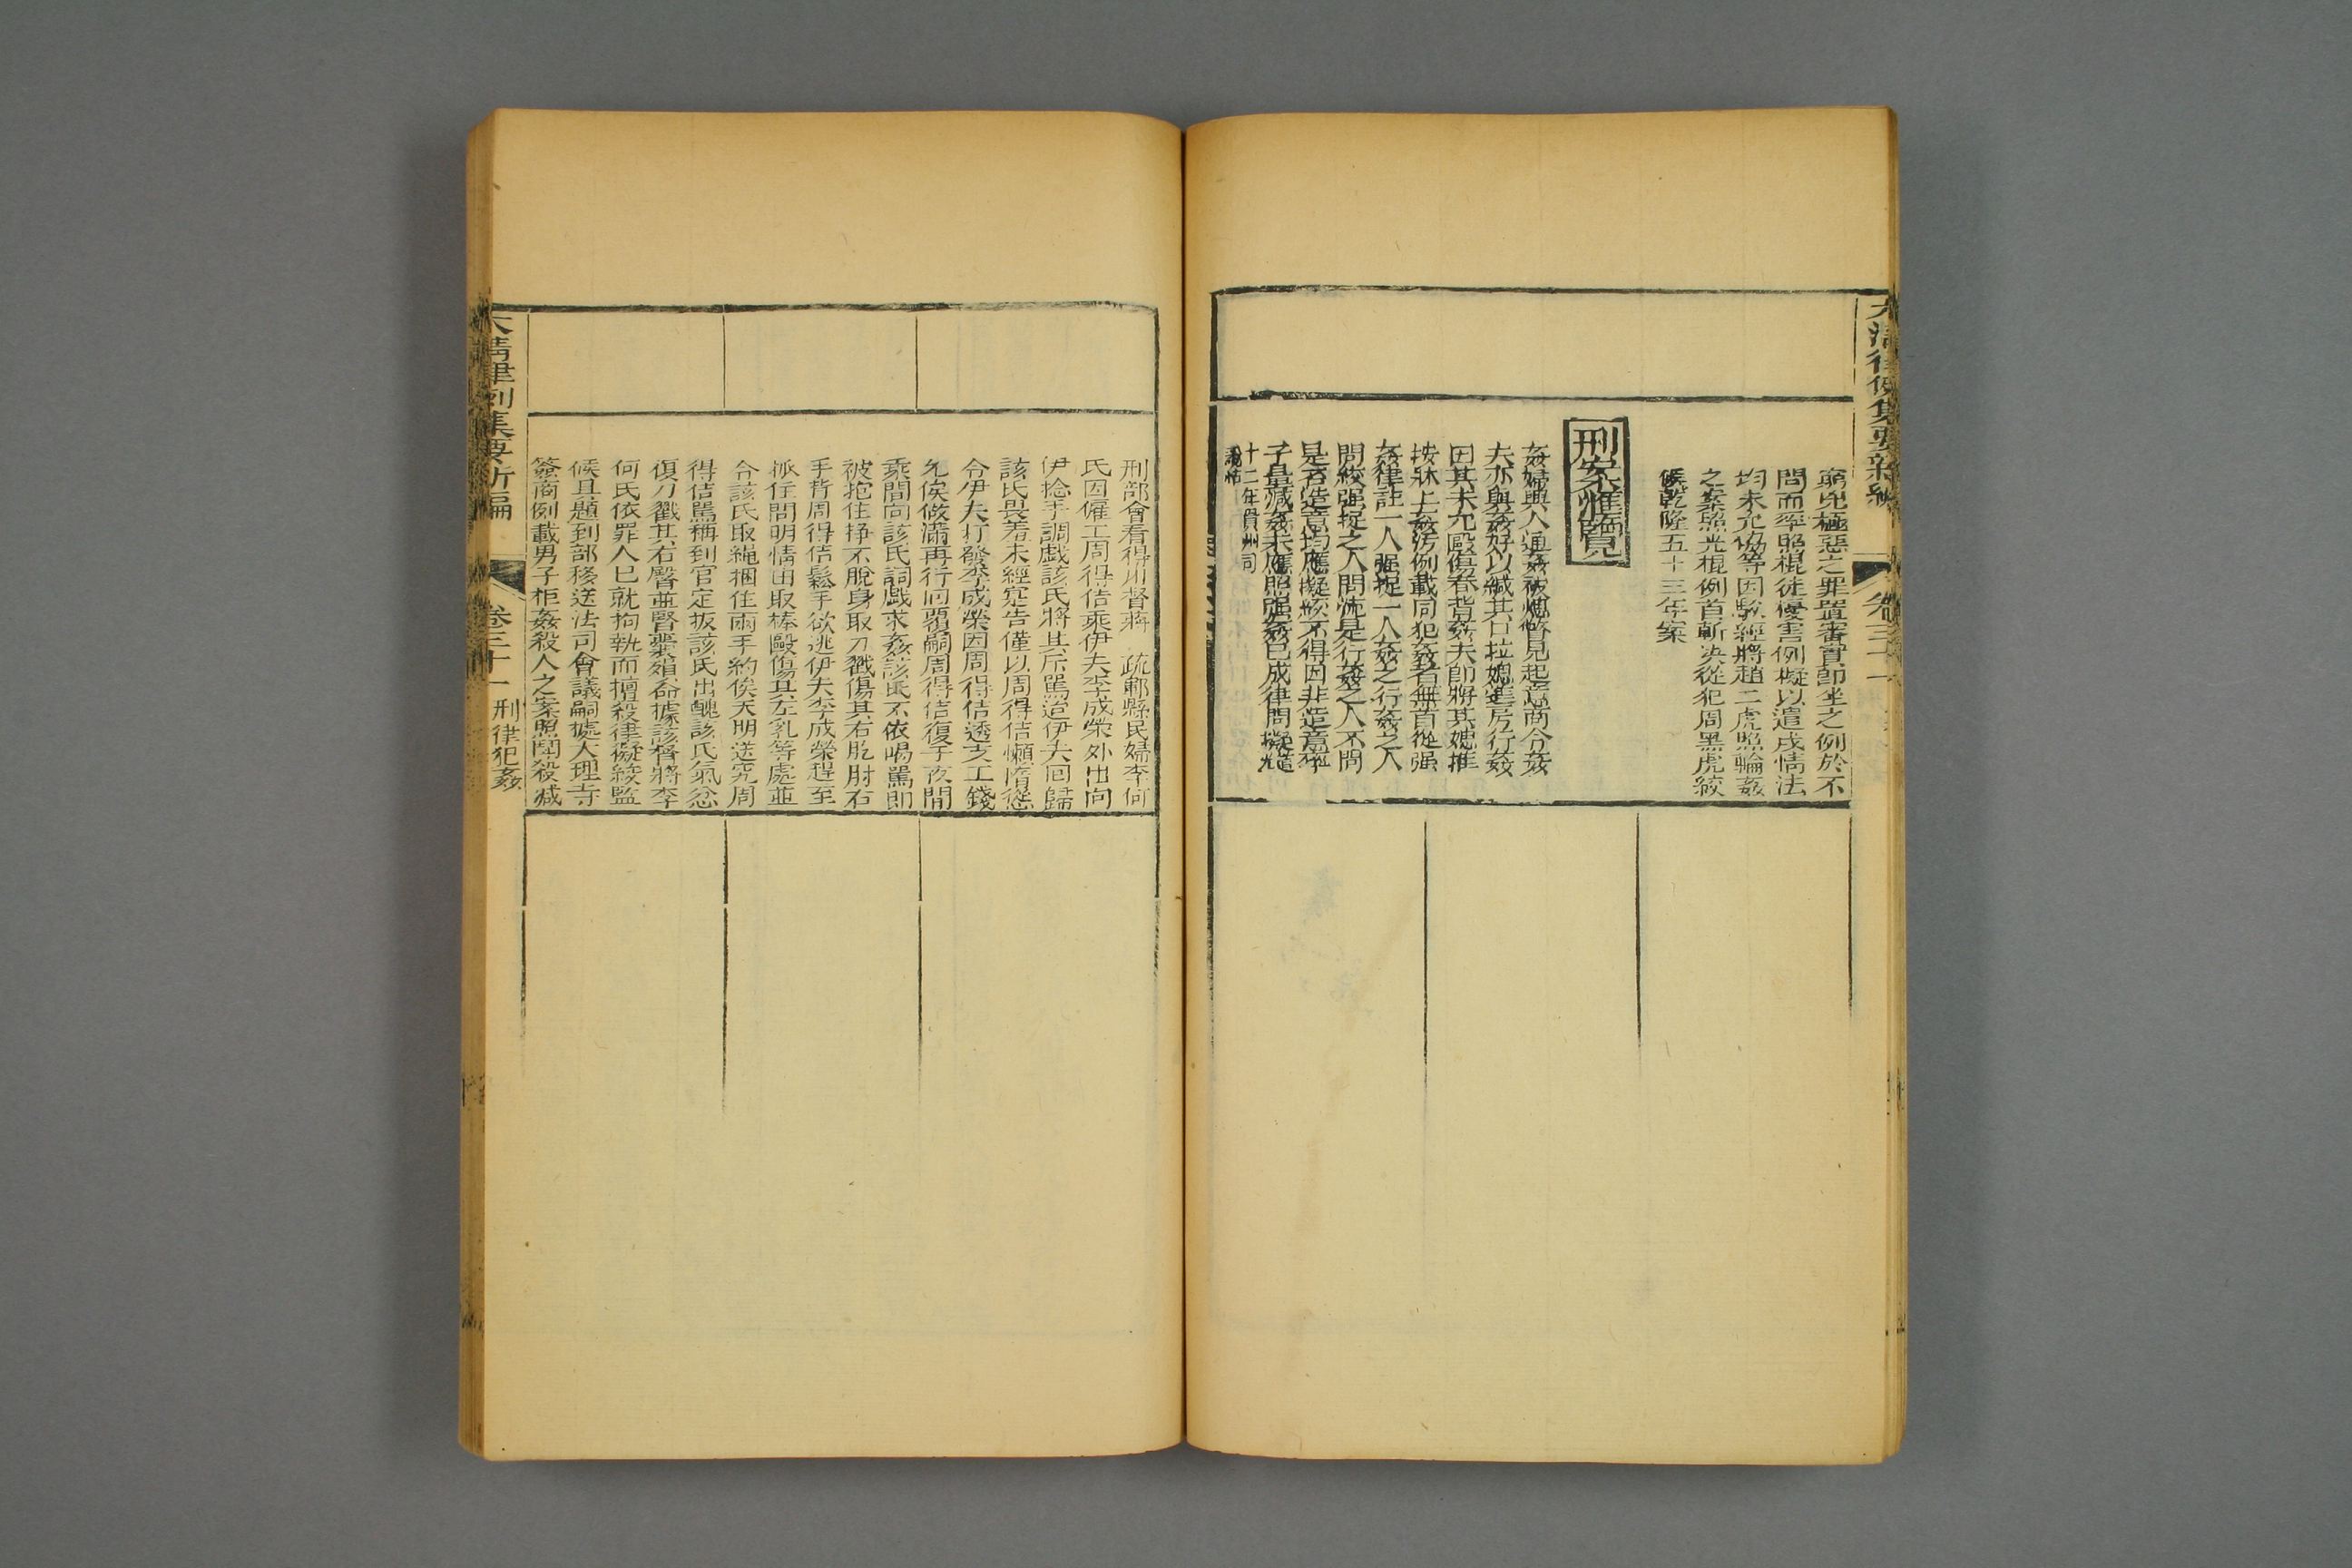 大清律例集要新編
卷三十一
窮兇極惡之罪置審實即坐之例於不
問而率照棍徒擾害例擬以遣戍情法
均未允協等因駁經將趙二虎照輪姦
之案照光棍例首斬决從犯周黑虎絞
候乾隆五十三年案
刑案滙覽
姦婦與人通姦被媳瞥見起意商令姦
夫亦與姦好以緘其口拉媳進房行姦
因其未允毆傷脊背姦夫即將其媳推
按牀上姦汚例載同犯姦者無首從强
姦律註一人强捉一人姦之行姦之人
問絞强捉之人問流是行姦之人不問
是否造意均應擬絞不得因非造意率
予量減姦夫應照强姦已成律問擬
十二年貴州司
說帖
刑部會看得川督蔣 疏郫縣民婦李何
氏因僱工周得佶乘伊夫李成榮外出向
伊捻手調戯該氏將其斥駡迨伊夫回歸
該氏畏羞未經寔告僅以周得佶懶惰慫
令伊夫打發李成榮因周得佶透支工錢
允俟做滿再行回覆嗣周得佶復于夜間
乘間向該氏調戯求姦該氏不依喝駡即
被抱住掙不脫身取刀戳傷其右肐肘右
手背周得佶鬆手欲逃伊夫李成榮趕至
扺住問明情由取棒毆傷其左乳等處並
令該氏取繩捆住兩手約俟天明送究周
得佶駡稱到官定扳該氏出醜該氏氣忿
復刀戳其右臀並腎囊殞命據該督將李
何氏依罪人已就拘執而擅殺律擬絞監
候具題到部移送法司會議嗣據大理寺
簽商例載男子柜姦殺人之案照鬪殺减
大清律例集要新編
卷三十一 刑律犯姦